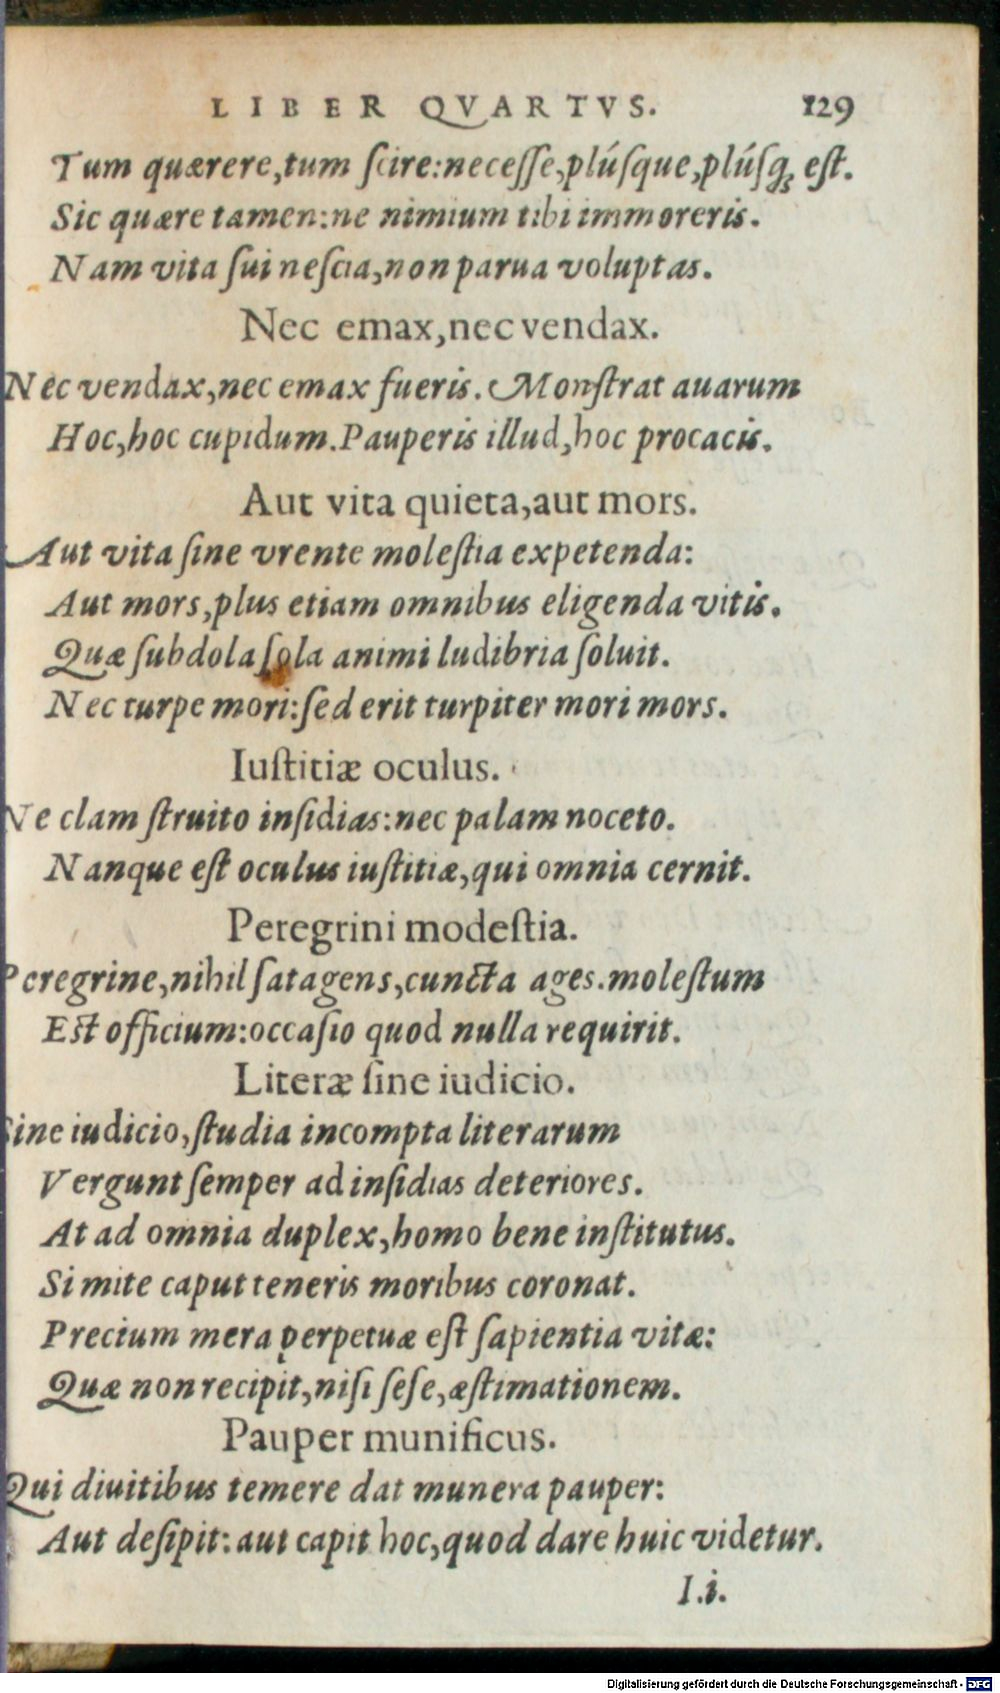 LIBER QVARTVS. 129
Tum quærere,tum ſcire:neceſſe,plúſque,plúſq; eſt.
Sic quære tamen:ne nimium tibi immoreris.
Nam vita ſui neſcia,non parua voluptas.
Nec emax,nec vendax.
Nec vendax,nec emax fueris. Monſtrat auarum
Hoc,hoc cupidum.Pauperis illud,hoc procacis.
Aut vita quieta,aut mors.
Aut vita ſine vrente moleſtia expetenda:
Aut mors,plus etiam omnibus eligenda vitis.
Quæ ſubdola ſola animi ludibria ſoluit.
Nec turpe mori:ſed erit turpiter mori mors.
Iuſtitiæ oculus.
Ne clam ſtruito inſidias:nec palam noceto.
Nanque eſt oculus iuſtitiæ,qui omnia cernit.
Peregrini modeſtia.
Peregrine,nihil ſatagens,cuncta ages.moleſtum
Eſt officium:occaſio quod nulla requirit.
Literæ ſine iudicio.
Sine iudicio,ſtudia incompta literarum
Vergunt ſemper ad inſidias deteriores.
At ad omnia duplex,homo bene inſtitutus.
Si mite caput teneris moribus coronat.
Precium mera perpetuæ eſt ſapientia vitæ:
Quæ non recipit,niſi ſeſe,æſtimationem.
Pauper munificus.
Qui diuitibus temere dat munera pauper:
Aut deſipit:aut capit hoc,quod dare huic videtur.
I.i.
Digitalisierung gefördert durch die Deutsche Forschungsgemeinschaft - DFG